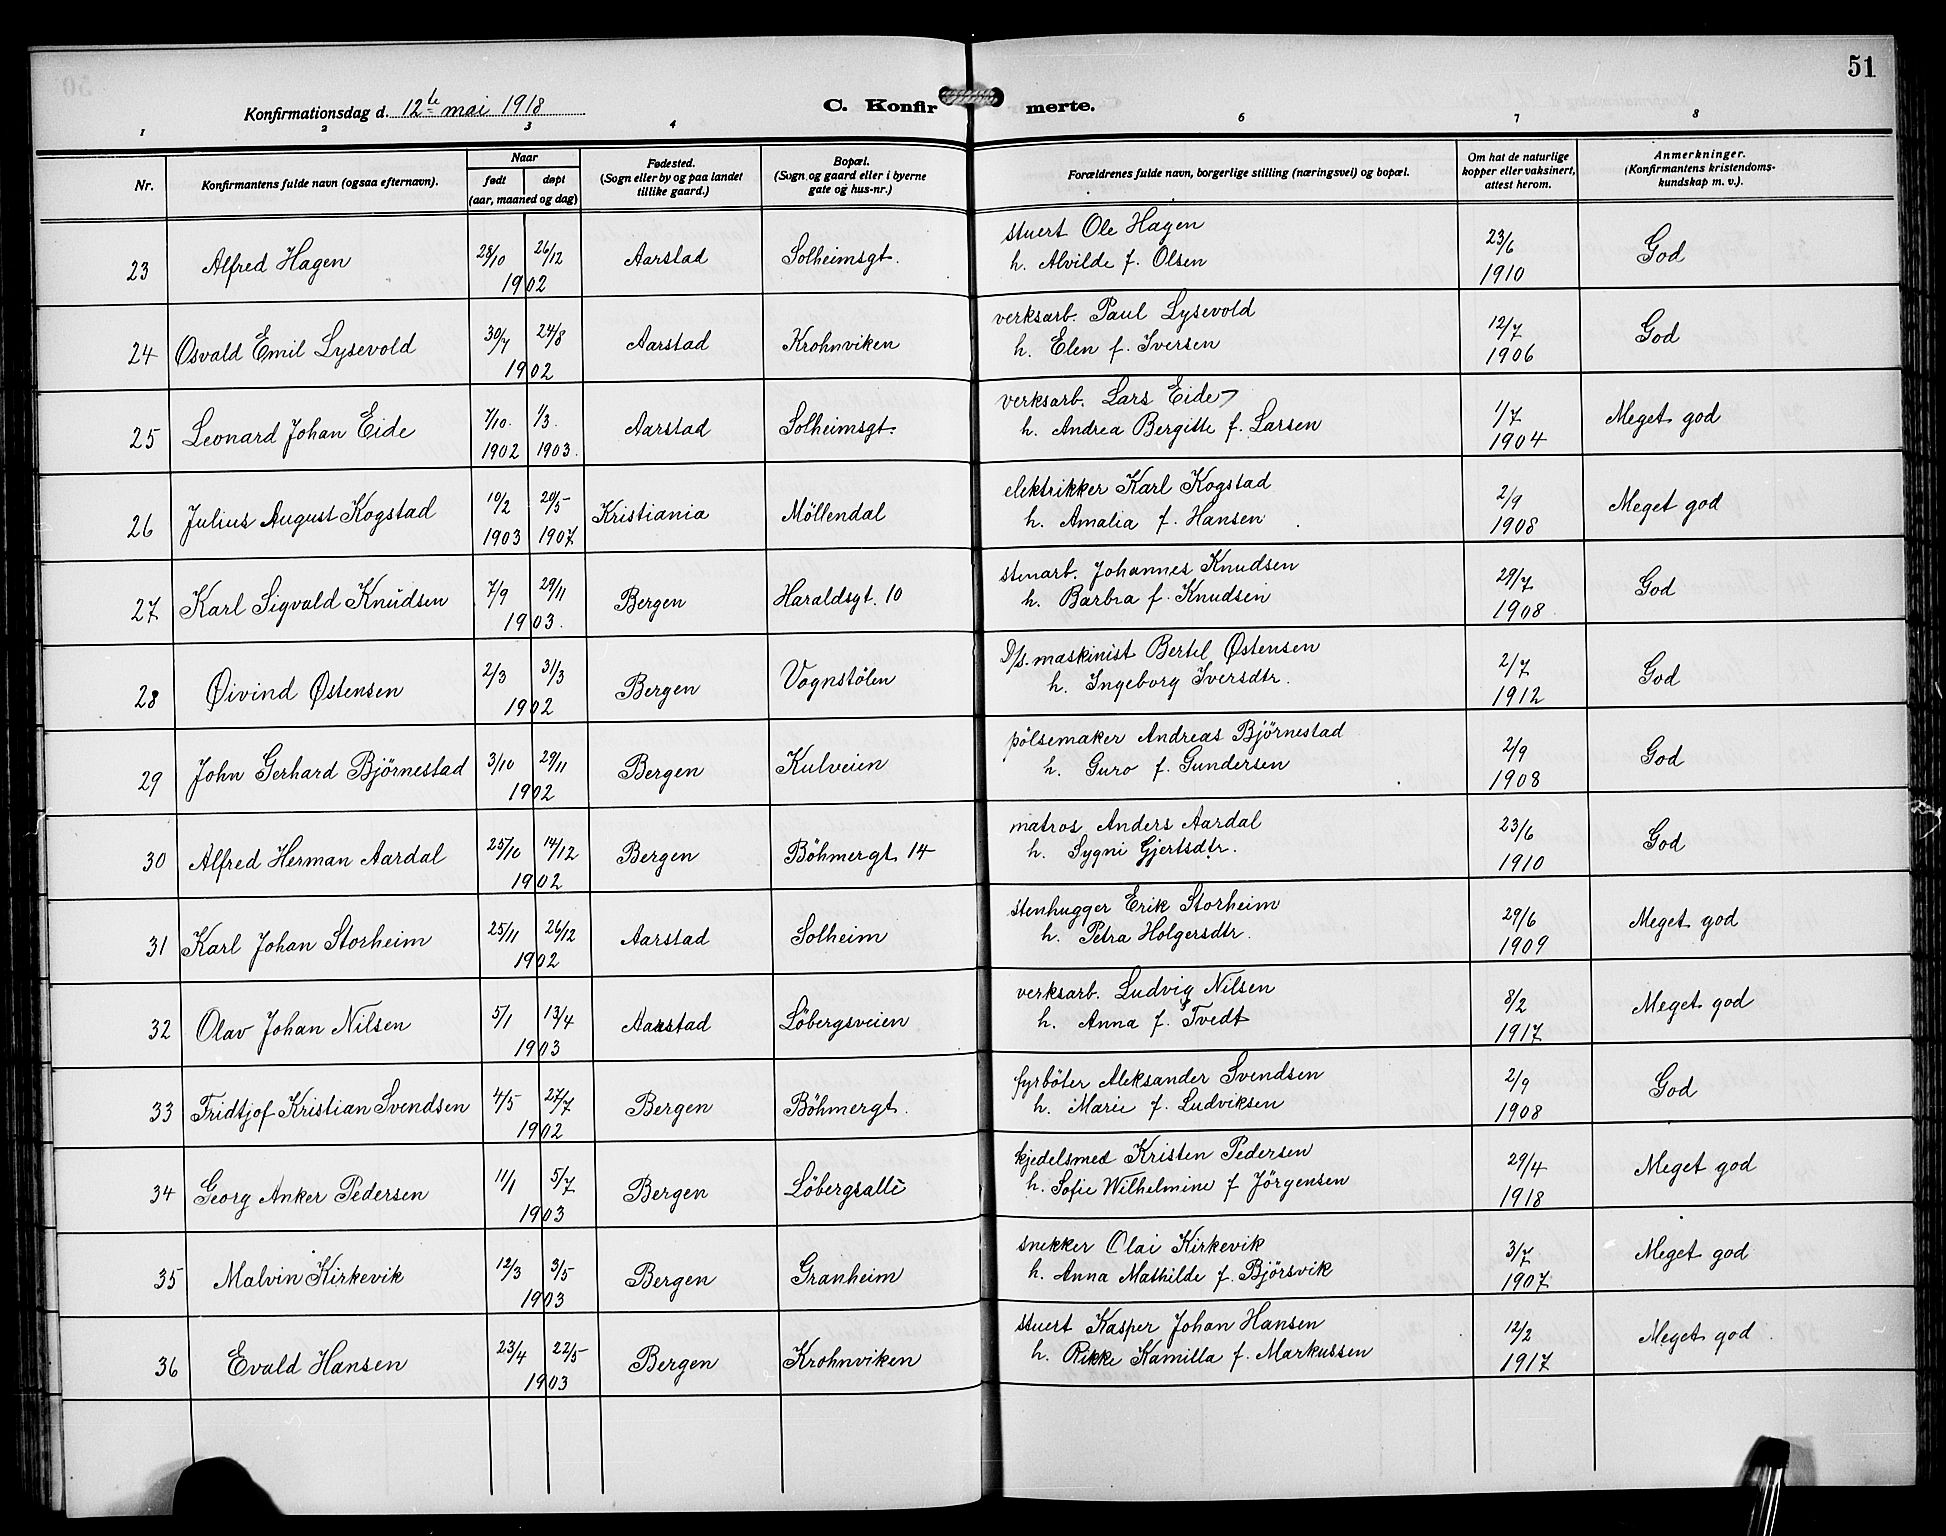 51
Konfirmationsdag d. 12te mai 1918
C. Konfirmerte.
1 2 3 4 6 7 8
Nr. Konfirmantens fulde navn (ogsaa efternavn). Naar født døpt (aar, maaned og dag) Fødested. (Sogn eller by og paa landet tillike gaard.) Bopæl. (Sogn og gaard eller i byerne gate og hus-nr.) Forældrenes fulde navn, borgerlige stilling (næringsvei) og bopæl. Om hat de naturlige kopper eller vaksinert, attest herom. Anmerkninger. (Konfirmantens kristendoms-kundskap m. v.).
23 Alfred Hagen 28/10 26/12 1902 Aarstad Solheimsgt. stuert Ole Hagen h. Alvilde f. Olsen 23/6 1910 God
24 Osvald Emil Lysevold 30/7 24/8 1902 Aarstad Krohnviken verksarb. Paul Lysevold h. Elen f. Iversen 12/7 1906 God
25 Leonard Johan Eide 7/10. 1902 1/3. 1903. Aarstad Solheimsgt. verksarb. Lars Eide h. Andrea Bergitte f. Larsen 1/7 1904 Meget god
26 Julius August Kogstad 10/2 1903 20/5 1907 Kristiania Möllendal elektrikker Karl Kogstad h. Amalia f. Hansen 2/9 1908 Meget god
27 Karl Sigvald Knudsen 7/9 29/11 1903. Bergen Haraldsgt. 10 stenarb. Johannes Knudsen h. Barbra f. Knudsen 29/7 1908 God
28 Øivind Østensen 2/3 31/3 1902 Bergen Vognstölen D/s. maskinist Bertel Østensen h. Ingeborg Iversdtr. 2/7 1912 God
29 John Gerhard Björnestad 3/10 29/11 1902 Bergen Kulveien pölsemaker Andreas Björnestad h. Guro f. Gundersen 2/9 1908 God
30 Alfred Herman Aardal 25/10 14/12 1902 Bergen Böhmergt 14 matros Anders Aardal h. Sygni Gjertsdtr. 23/6 1910 God
31 Karl Johan Storheim 25/11 26/12 1902 Aarstad Solheim stenhugger Erik Storheim h. Petra Holgersdtr. 29/6 1909 Meget god
32 Olav Johan Nilsen 5/1 13/4 1903 Aarstad Löbergsveien verksarb. Ludvig Nilsen h. Anna f. Tvedt 8/2 1917 Meget god
33 Fridtjof Kristian Svendsen 4/5 27/7 1902 Bergen Böhmergt. fyrböter Aleksander Svendsen h. Marie f. Ludviksen 2/9 1908 God
34 Georg Anker Pedersen 11/1 5/7 1903 Bergen Löbergsallé kjedelsmed Kristen Pedersen h. Sofie Wilhelmine f Jörgensen 29/4 1918 Meget god
35 Malvin Kirkevik 12/3 3/5 1903 Bergen Granheim snekker Olai Kirkevik h. Anna Mathilde f. Björsvik 3/7 1907 Meget god
36 Evald Hansen 23/4 22/5 1903 Bergen Krohnviken stuert Kasper Johan Hansen h. Rikke Kamilla f. Markussen 12/2 1917 Meget god